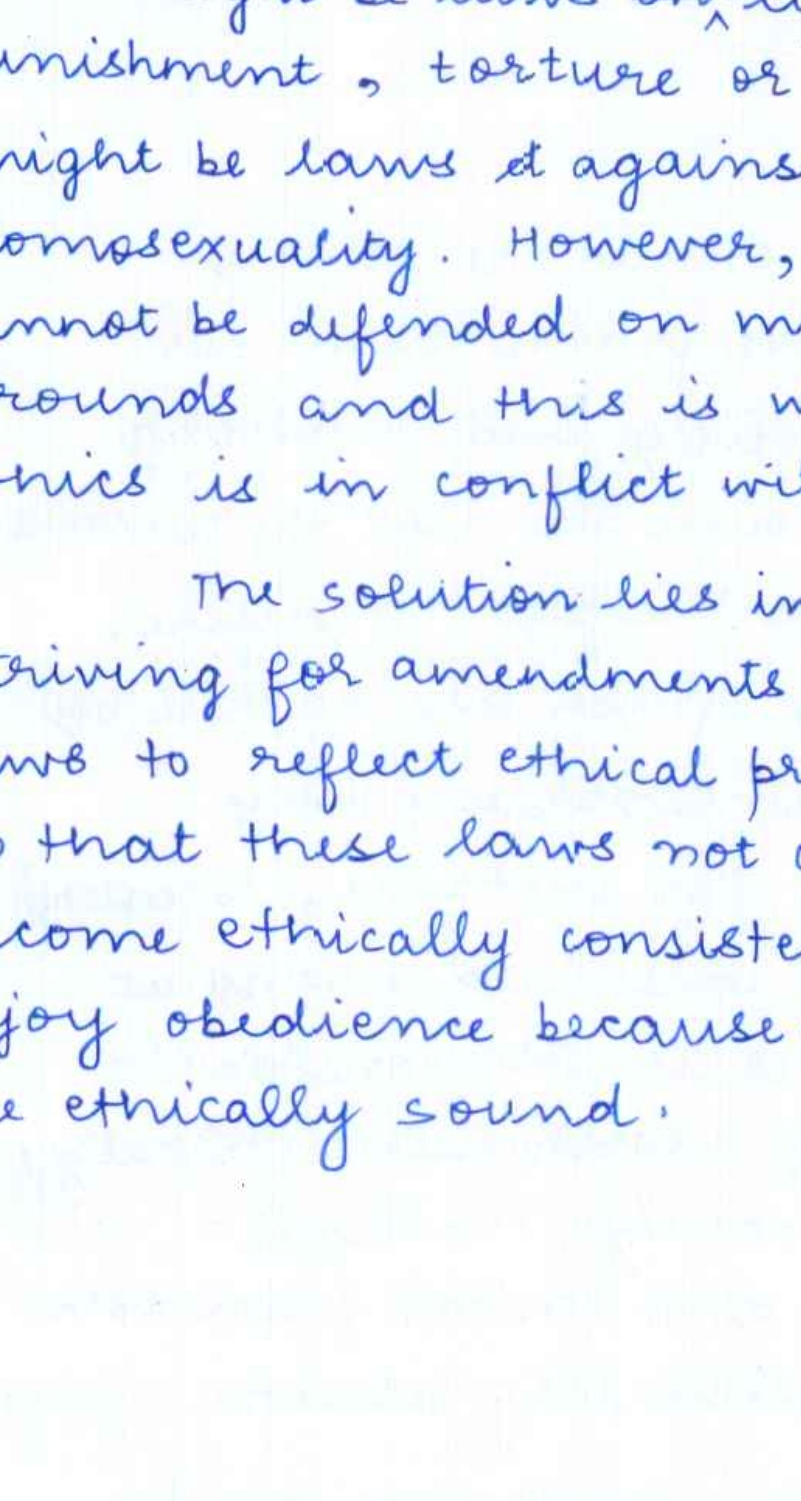 unishment, torture or
might be laws et agains
omosexuality. However,
nnot be defended on m
rounds and this is w
hics is in conflict wi
The solution lies in
triving for amendments
ws to reflect ethical pr
o that these laws not
come ethically consiste
joy obedience because
e ethically sound.